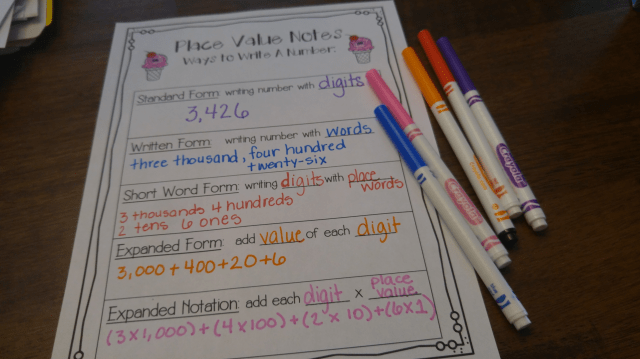 Place Value Notes
Ways to Write A Number:
Standard Form: writing number with digits
3,426
Written Form: writing number with words
three thousand, four hundred
twenty-six
Short Word Form: writing digits with place
words
3 thousands 4 hundreds
2 tens 6 ones
Expanded Form: add value of each digit
3,000 + 400 + 20 + 6
Expanded Notation: add each digit x place
value
(3 x 1,000) + (4 x 100) + (2 x 10) + (6 x 1)
Crayola
Crayola